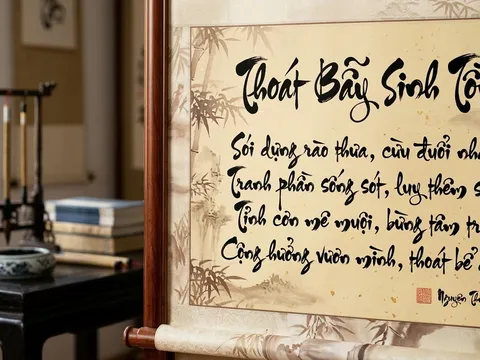 Thoát Bẫy Sinh Tồ
Sói dựng rào thưa, cừu đuổi nh
Tranh phần sống sót, lụy thêm s
Tỉnh cơn mê muội, bừng tâm tr
Cộng hưởng vươn mình, thoát bể
Nguyễn Th